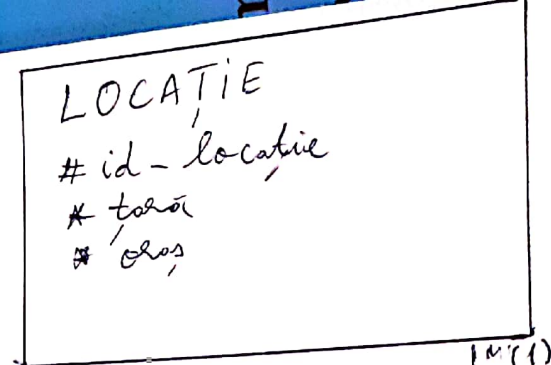 LOCAȚIE
# id-locație
* țară
* oraș